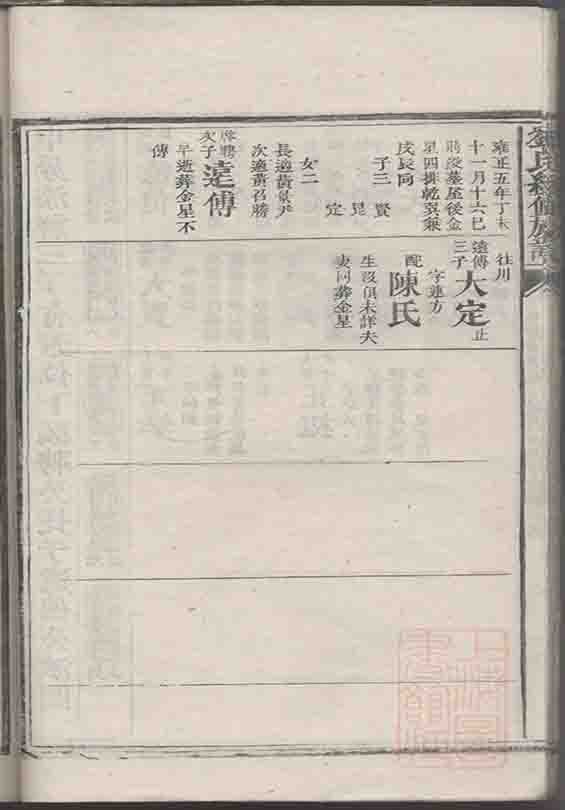 雍正五年丁未
十一月十六巳
時歿墓屋後金
星四排乾巽兼
戌辰向
子三
賢
昆
定
女二
長適黃
次適黃召勝
次子
遠傳
早逝葬金星不
傳
往川
遠傳
三子
大定
止
字連方
配
陳氏
生歿俱未詳夫
妻同葬金星
氏續修族譜